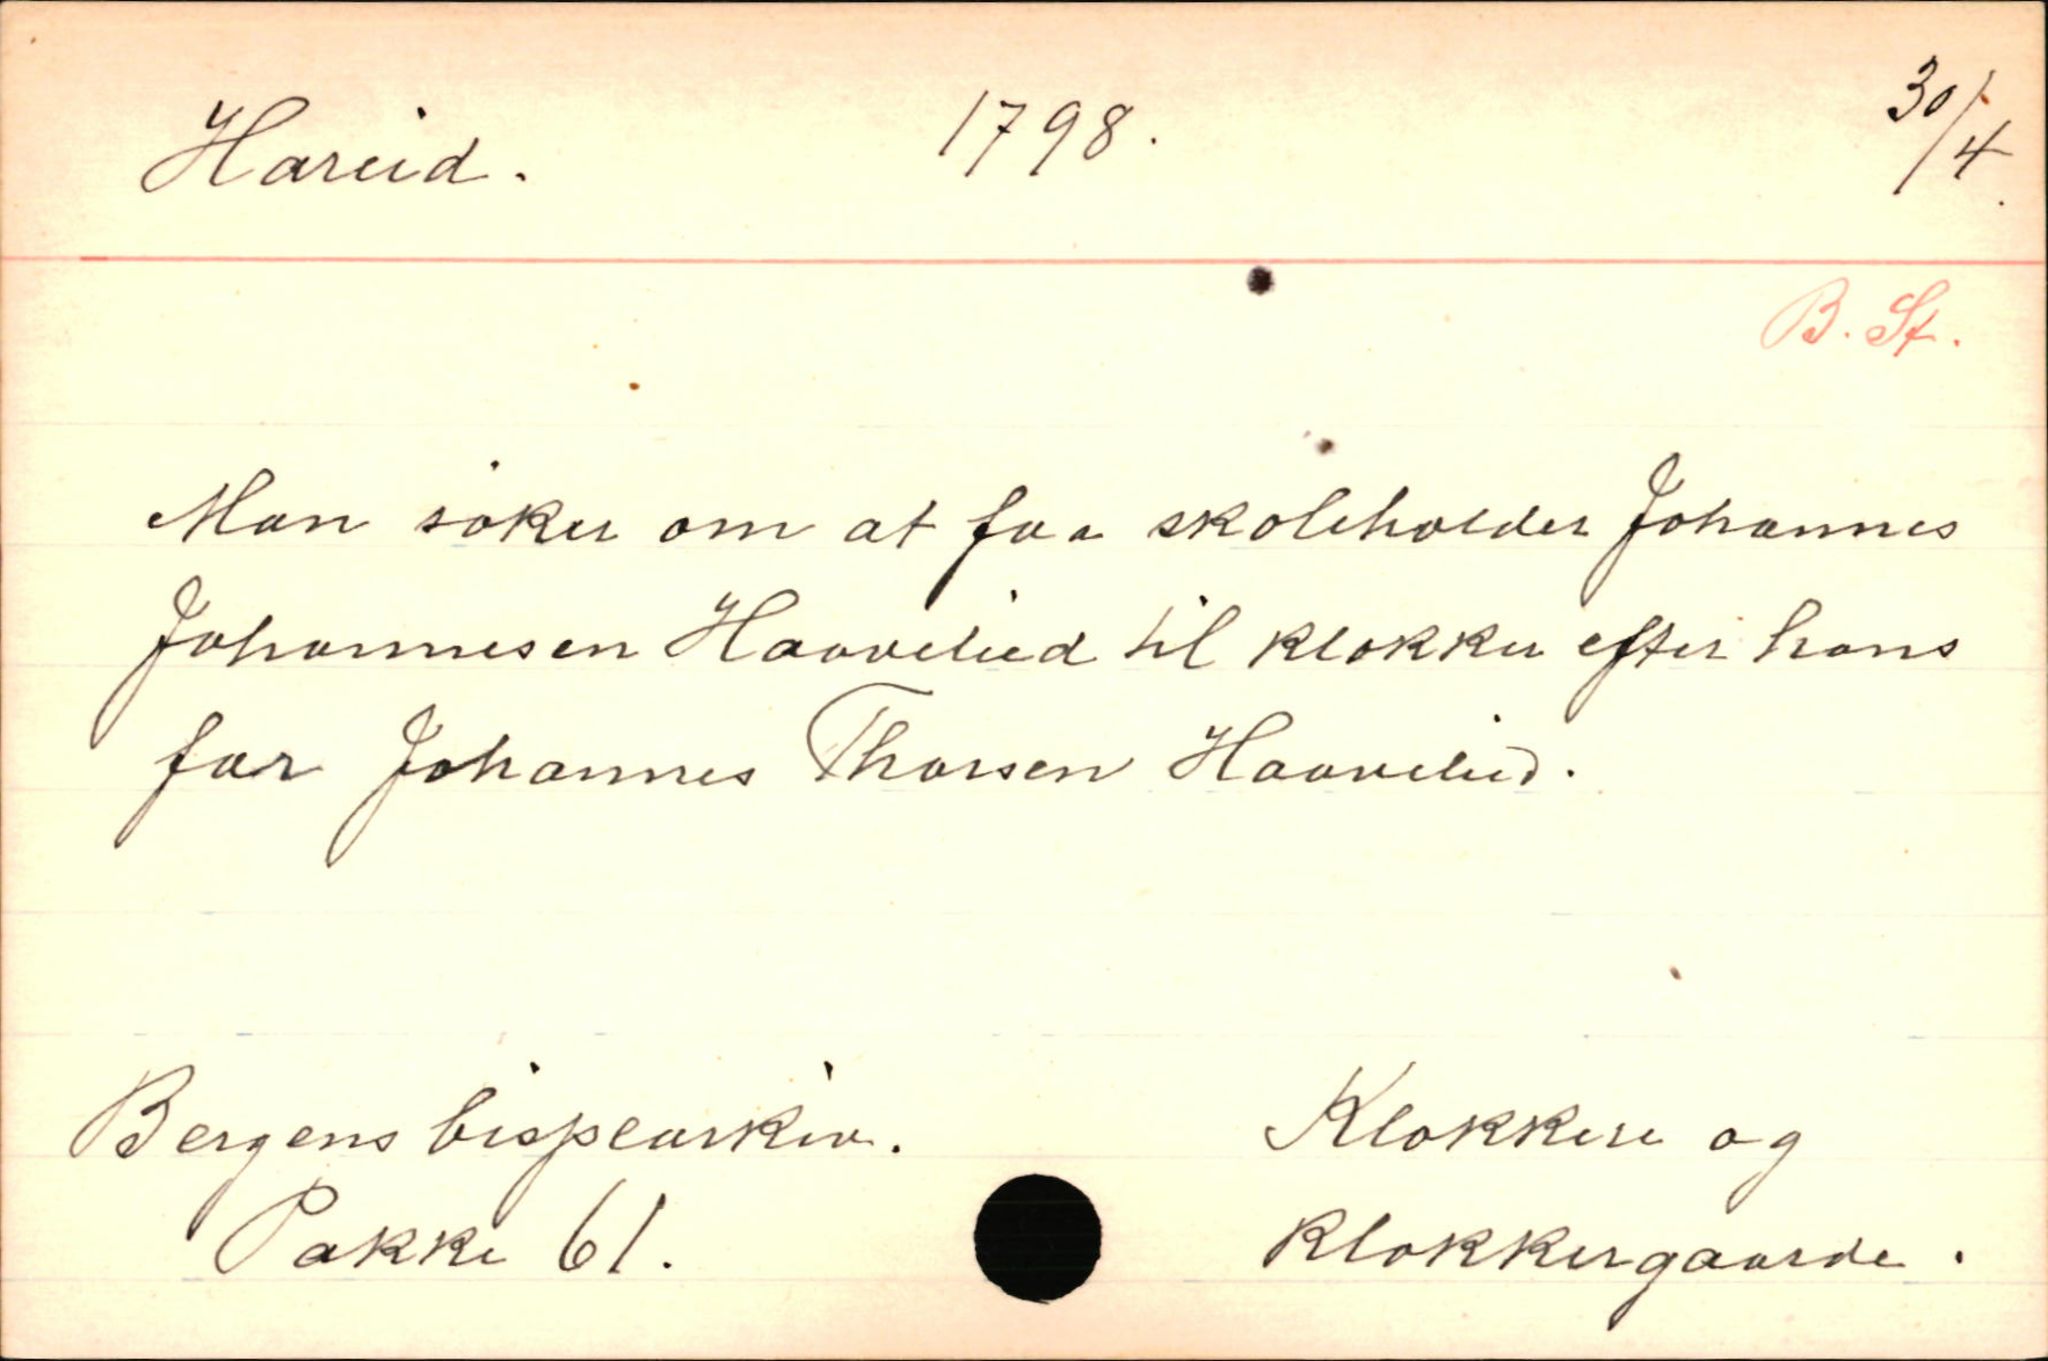 Hareid. 1798. 30/4.
B. St.
Man søker om at faa skoleholder Johannes
Johannesen Haavelied til klokker efter hans
far Johannes Thorsen Haavelied.
Bergens bispearkiv.
Pakke 61.
Klokkere og
klokkergaarde.